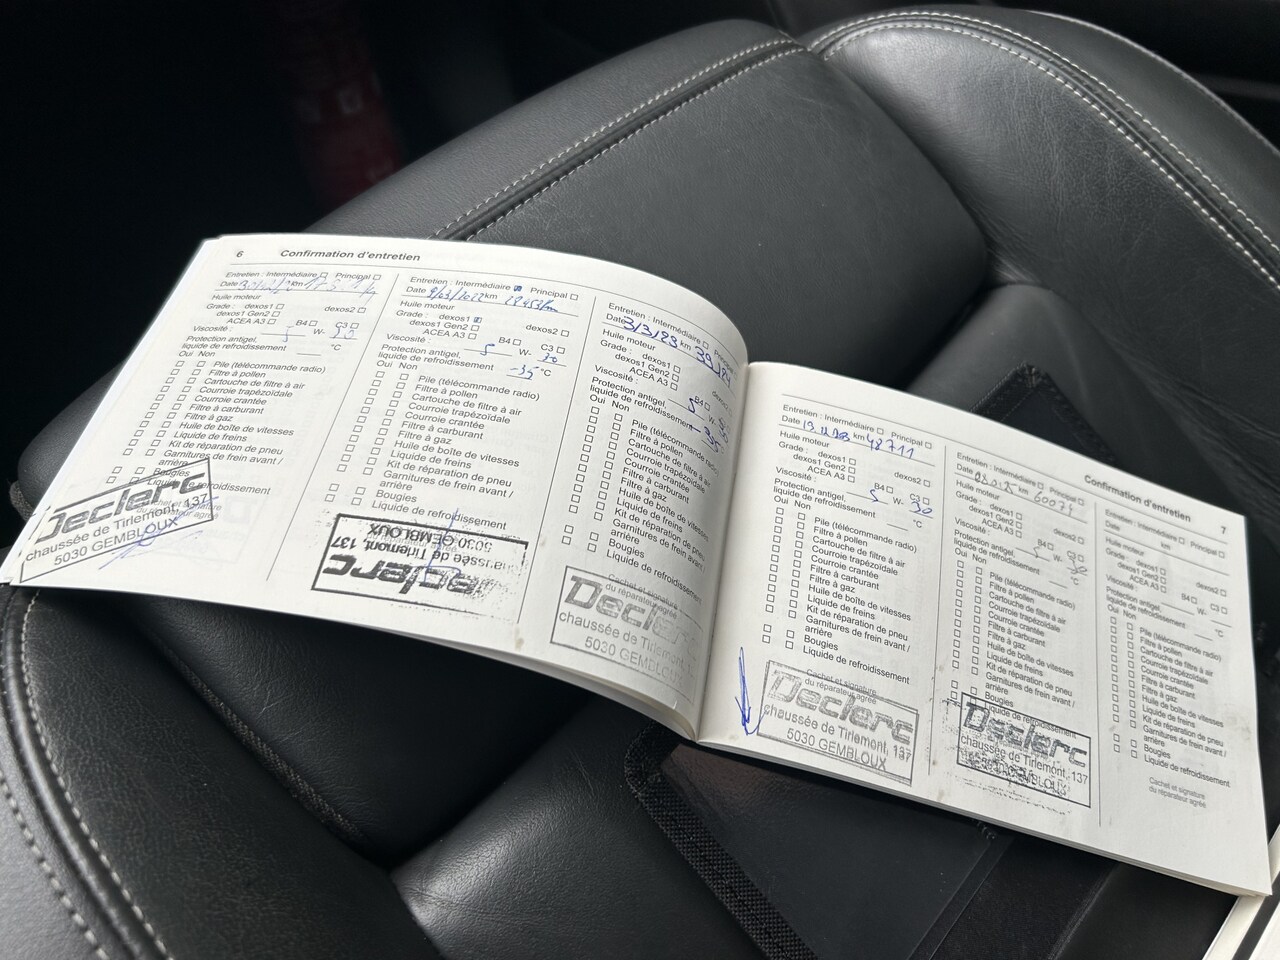 6 Confirmation d'entretien
Entretien : Intermédiaire Principal
Date km
Huile moteur
Grade : dexos1 dexos2
dexos1 Gen2
ACEA A3 B4 C3
Viscosité : 5 W- 30
Protection antigel,
liquide de refroidissement °C
Oui Non
Pile (télécommande radio)
Filtre à pollen
Cartouche de filtre à air
Courroie trapézoïdale
Courroie crantée
Filtre à carburant
Filtre à gaz
Huile de boîte de vitesses
Liquide de freins
Kit de réparation de pneu
Garnitures de frein avant /
arrière
Bougies
Liquide de refroidissement
Declerc
chaussée de Tirlemont, 137
5030 GEMBLOUX
Entretien : Intermédiaire Principal
Date 9/03/2022 km 28453km
Huile moteur
Grade : dexos1 dexos2
dexos1 Gen2
ACEA A3 B4 C3
Viscosité : 5 W- 30
Protection antigel,
liquide de refroidissement -35 °C
Oui Non
Pile (télécommande radio)
Filtre à pollen
Cartouche de filtre à air
Courroie trapézoïdale
Courroie crantée
Filtre à carburant
Filtre à gaz
Huile de boîte de vitesses
Liquide de freins
Kit de réparation de pneu
Garnitures de frein avant /
arrière
Bougies
Liquide de refroidissement
Declerc
chaussée de Tirlemont, 137
5030 GEMBLOUX
Entretien : Intermédiaire Principal
Date 3/3/23 km
Huile moteur
Grade : dexos1
dexos1 Gen2
ACEA A3 B4
Viscosité : 5 W-
Protection antigel,
liquide de refroidissement -35
Oui Non
Pile (télécommande radio)
Filtre à pollen
Cartouche de filtre à air
Courroie trapézoïdale
Courroie crantée
Filtre à carburant
Filtre à gaz
Huile de boîte de vitesses
Liquide de freins
Kit de réparation de pneu
Garnitures de frein avant /
arrière
Bougies
Liquide de refroidissement
Cachet et signature
du réparateur agréé
Declerc
chaussée de Tirlemont, 1
5030 GEMBLOUX
Entretien : Intermédiaire Principal
Date km 48711
Huile moteur
Grade : dexos1 dexos2
dexos1 Gen2
ACEA A3 B4 C3
Viscosité : 5 W- 30
Protection antigel,
liquide de refroidissement °C
Oui Non
Pile (télécommande radio)
Filtre à pollen
Cartouche de filtre à air
Courroie trapézoïdale
Courroie crantée
Filtre à carburant
Filtre à gaz
Huile de boîte de vitesses
Liquide de freins
Kit de réparation de pneu
Garnitures de frein avant /
arrière
Bougies
Liquide de refroidissement
Cachet et signature
du réparateur agréé
Declerc
chaussée de Tirlemont, 137
5030 GEMBLOUX
Confirmation d'entretien 7
Entretien : Intermédiaire Principal
Date km 60074
Huile moteur
Grade : dexos1 dexos2
dexos1 Gen2
ACEA A3 B4 C3
Viscosité : 5 W- 30
Protection antigel,
liquide de refroidissement °C
Oui Non
Pile (télécommande radio)
Filtre à pollen
Cartouche de filtre à air
Courroie trapézoïdale
Courroie crantée
Filtre à carburant
Filtre à gaz
Huile de boîte de vitesses
Liquide de freins
Kit de réparation de pneu
Garnitures de frein avant /
arrière
Bougies
Liquide de refroidissement
Declerc
chaussée de Tirlemont, 137
5030 GEMBLOUX
Entretien : Intermédiaire Principal
Date km
Huile moteur
Grade : dexos1 dexos2
dexos1 Gen2
ACEA A3 B4 C3
Viscosité : W-
Protection antigel,
liquide de refroidissement °C
Oui Non
Pile (télécommande radio)
Filtre à pollen
Cartouche de filtre à air
Courroie trapézoïdale
Courroie crantée
Filtre à carburant
Filtre à gaz
Huile de boîte de vitesses
Liquide de freins
Kit de réparation de pneu
Garnitures de frein avant /
arrière
Bougies
Liquide de refroidissement
Cachet et signature
du réparateur agréé